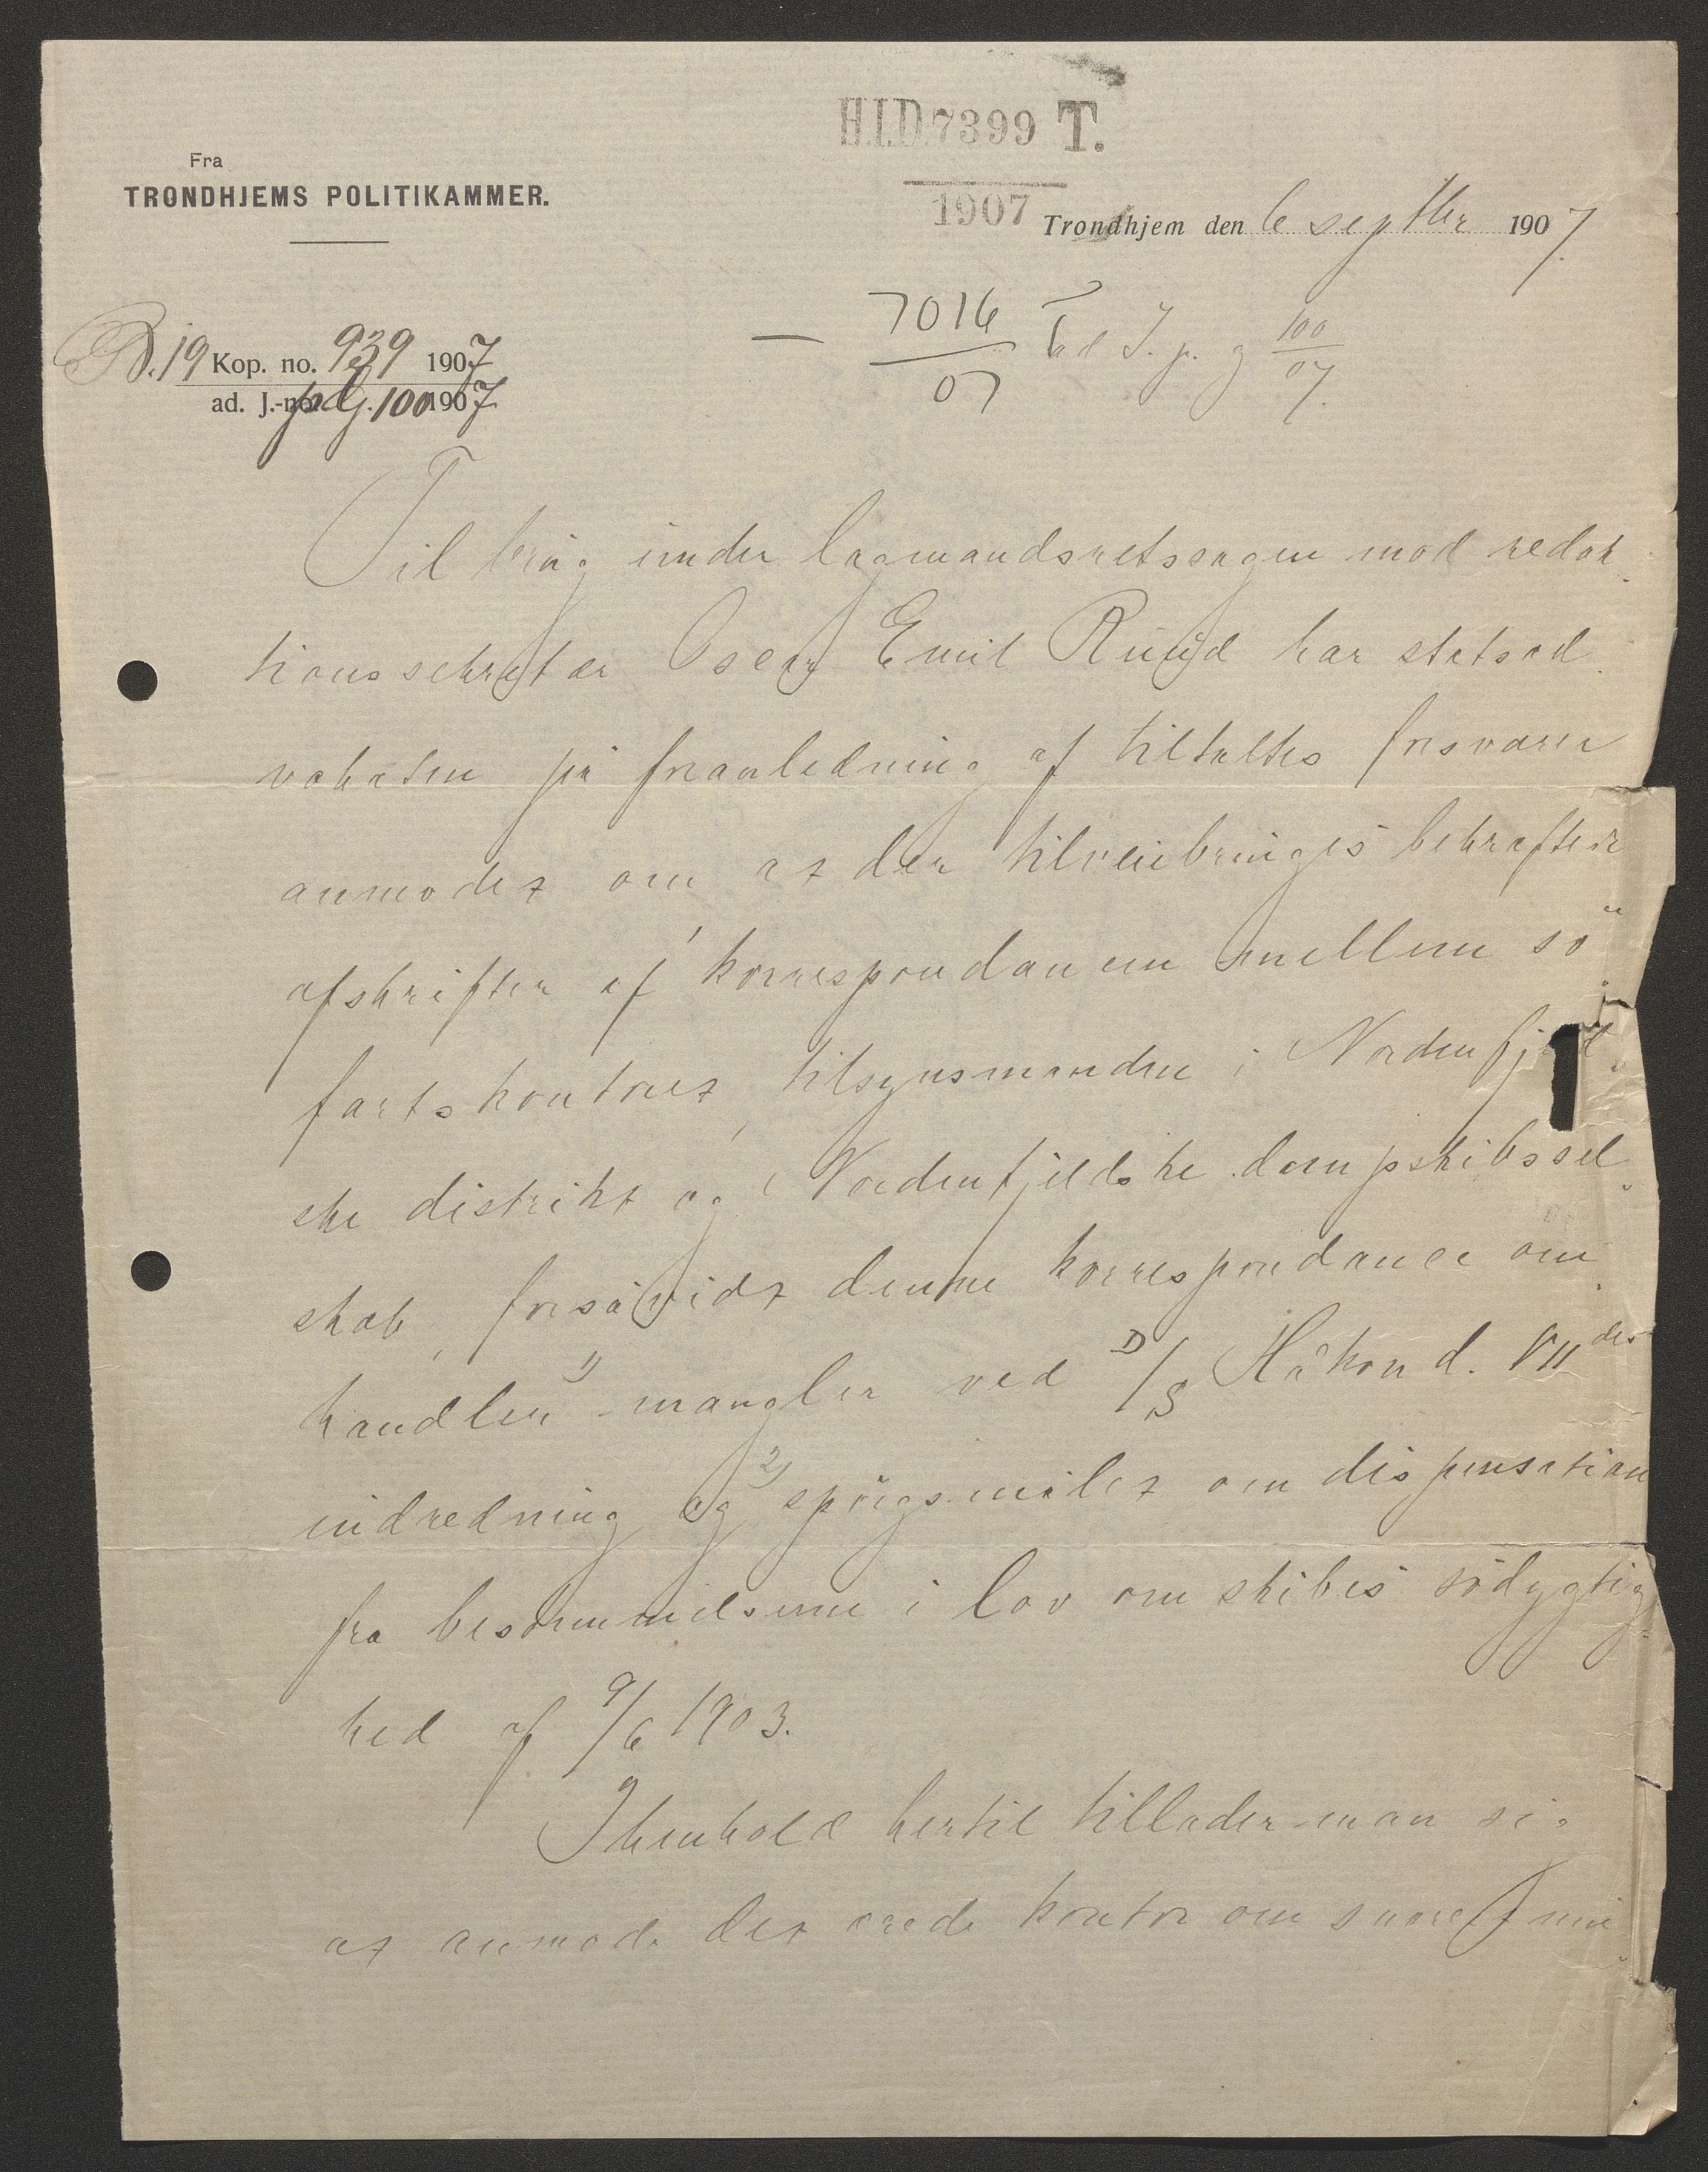 H.I.D. 7399 T.
1907
Fra
TRONDHJEMS POLITIKAMMER.
Trondhjem den 6 septbr 1907.
7016 Til J. p. g 100
07 07.
B. 19 Kop. no. 939 1907
ad. J.-no. pdg. 100 1907
Til brug under lagmandsretssagen mod redak
tionssekretær Oscar Emil Ruud har statsad
vokaten på foranledning af tiltaltes forsvarer
anmodet om at der tilveiebringes bekræftede
afskrifter af korrespondancen mellem sö
fartskontoret, tilsynsmanden i Nordenfjeld
ske distrikt og Nordenfjeldske dampskibssel
skab, forsåvidt denne korrespondance om
handler 1) mangler ved D/S Håkon d. VII des
indredning og 2) spörgsmålet om dispensation
fra bestemmelserne i lov om skibes södygtig
hed af 9/6 1903.
I henhold hertil tillader man sig
at anmode det ærede kontor om snarest mu